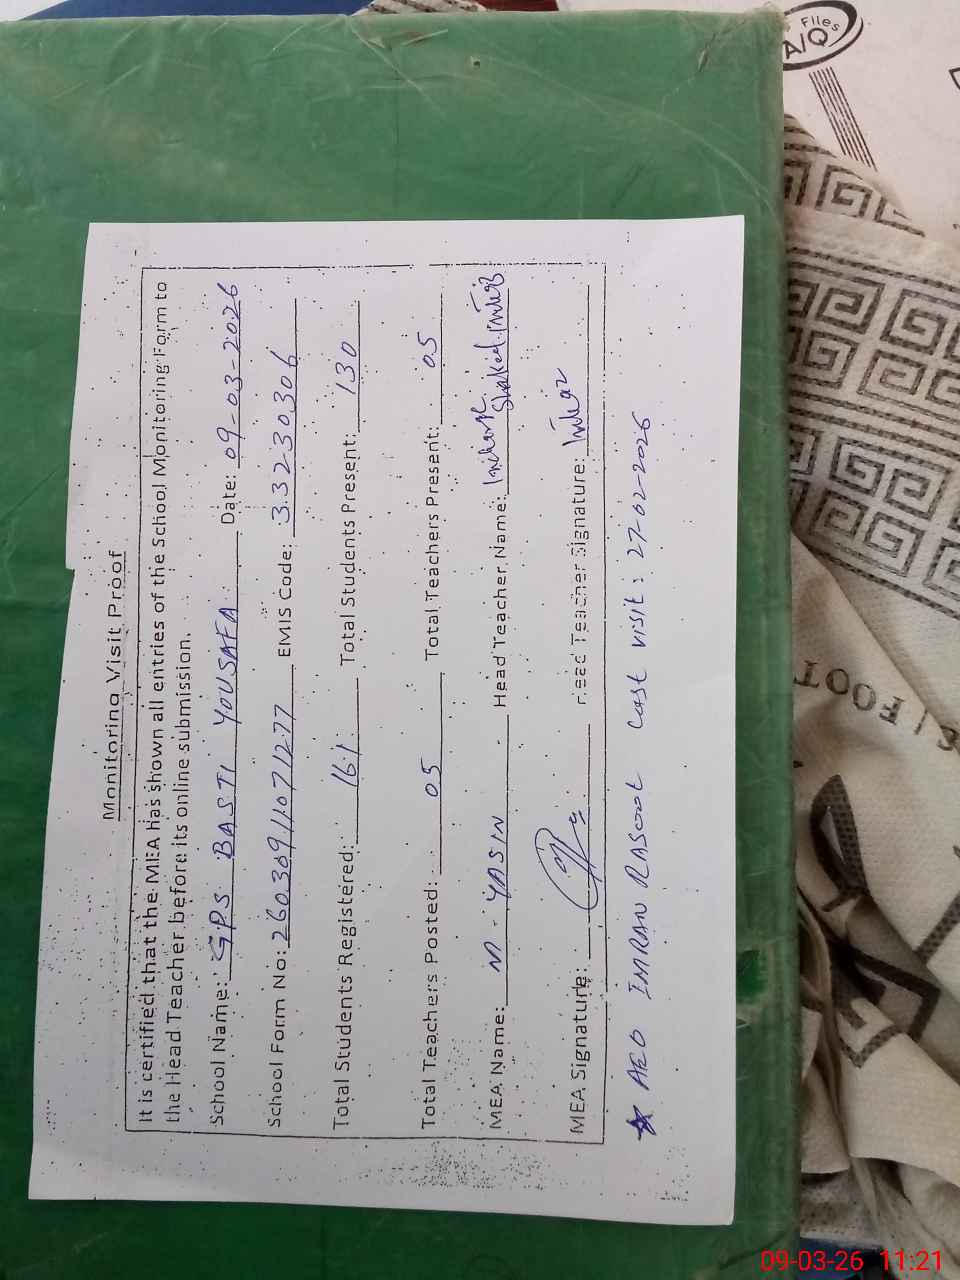 Monitoring Visit Proof
It is certified that the MEA has shown all entries of the School Monitoring Form to
the Head Teacher before its online submission.
School Name: GPS BASTI YOUSAFA Date: 09-03-2026
School Form No: 2603091107 1277 EMIS Code: 33230306
Total Students Registered: 161 Total Students Present: 130
Total Teachers Posted: 05 Total Teachers Present: 05
MEA Name: M. YASIN Head Teacher Name:
MEA Signature: Head Teacher Signature:
AEO IMRAN RASOOL Last visit: 27-02-2026
Files
A/Q
FOOT
09-03-26 11:21